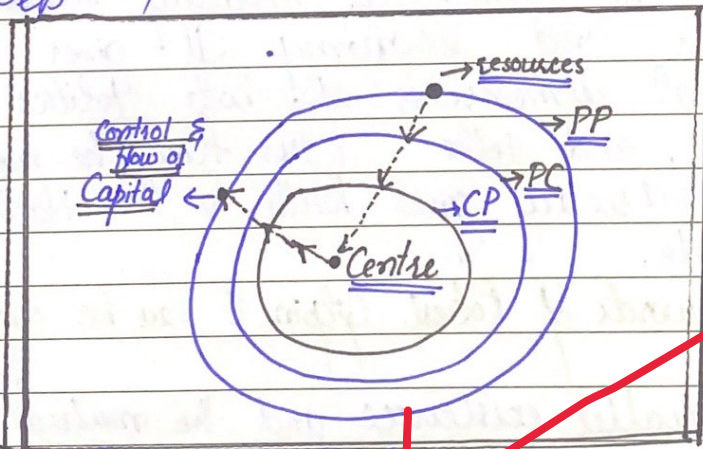 → resources
→ PP
Control &
flow of
Capital ←
→ PC
→ CP
Centre